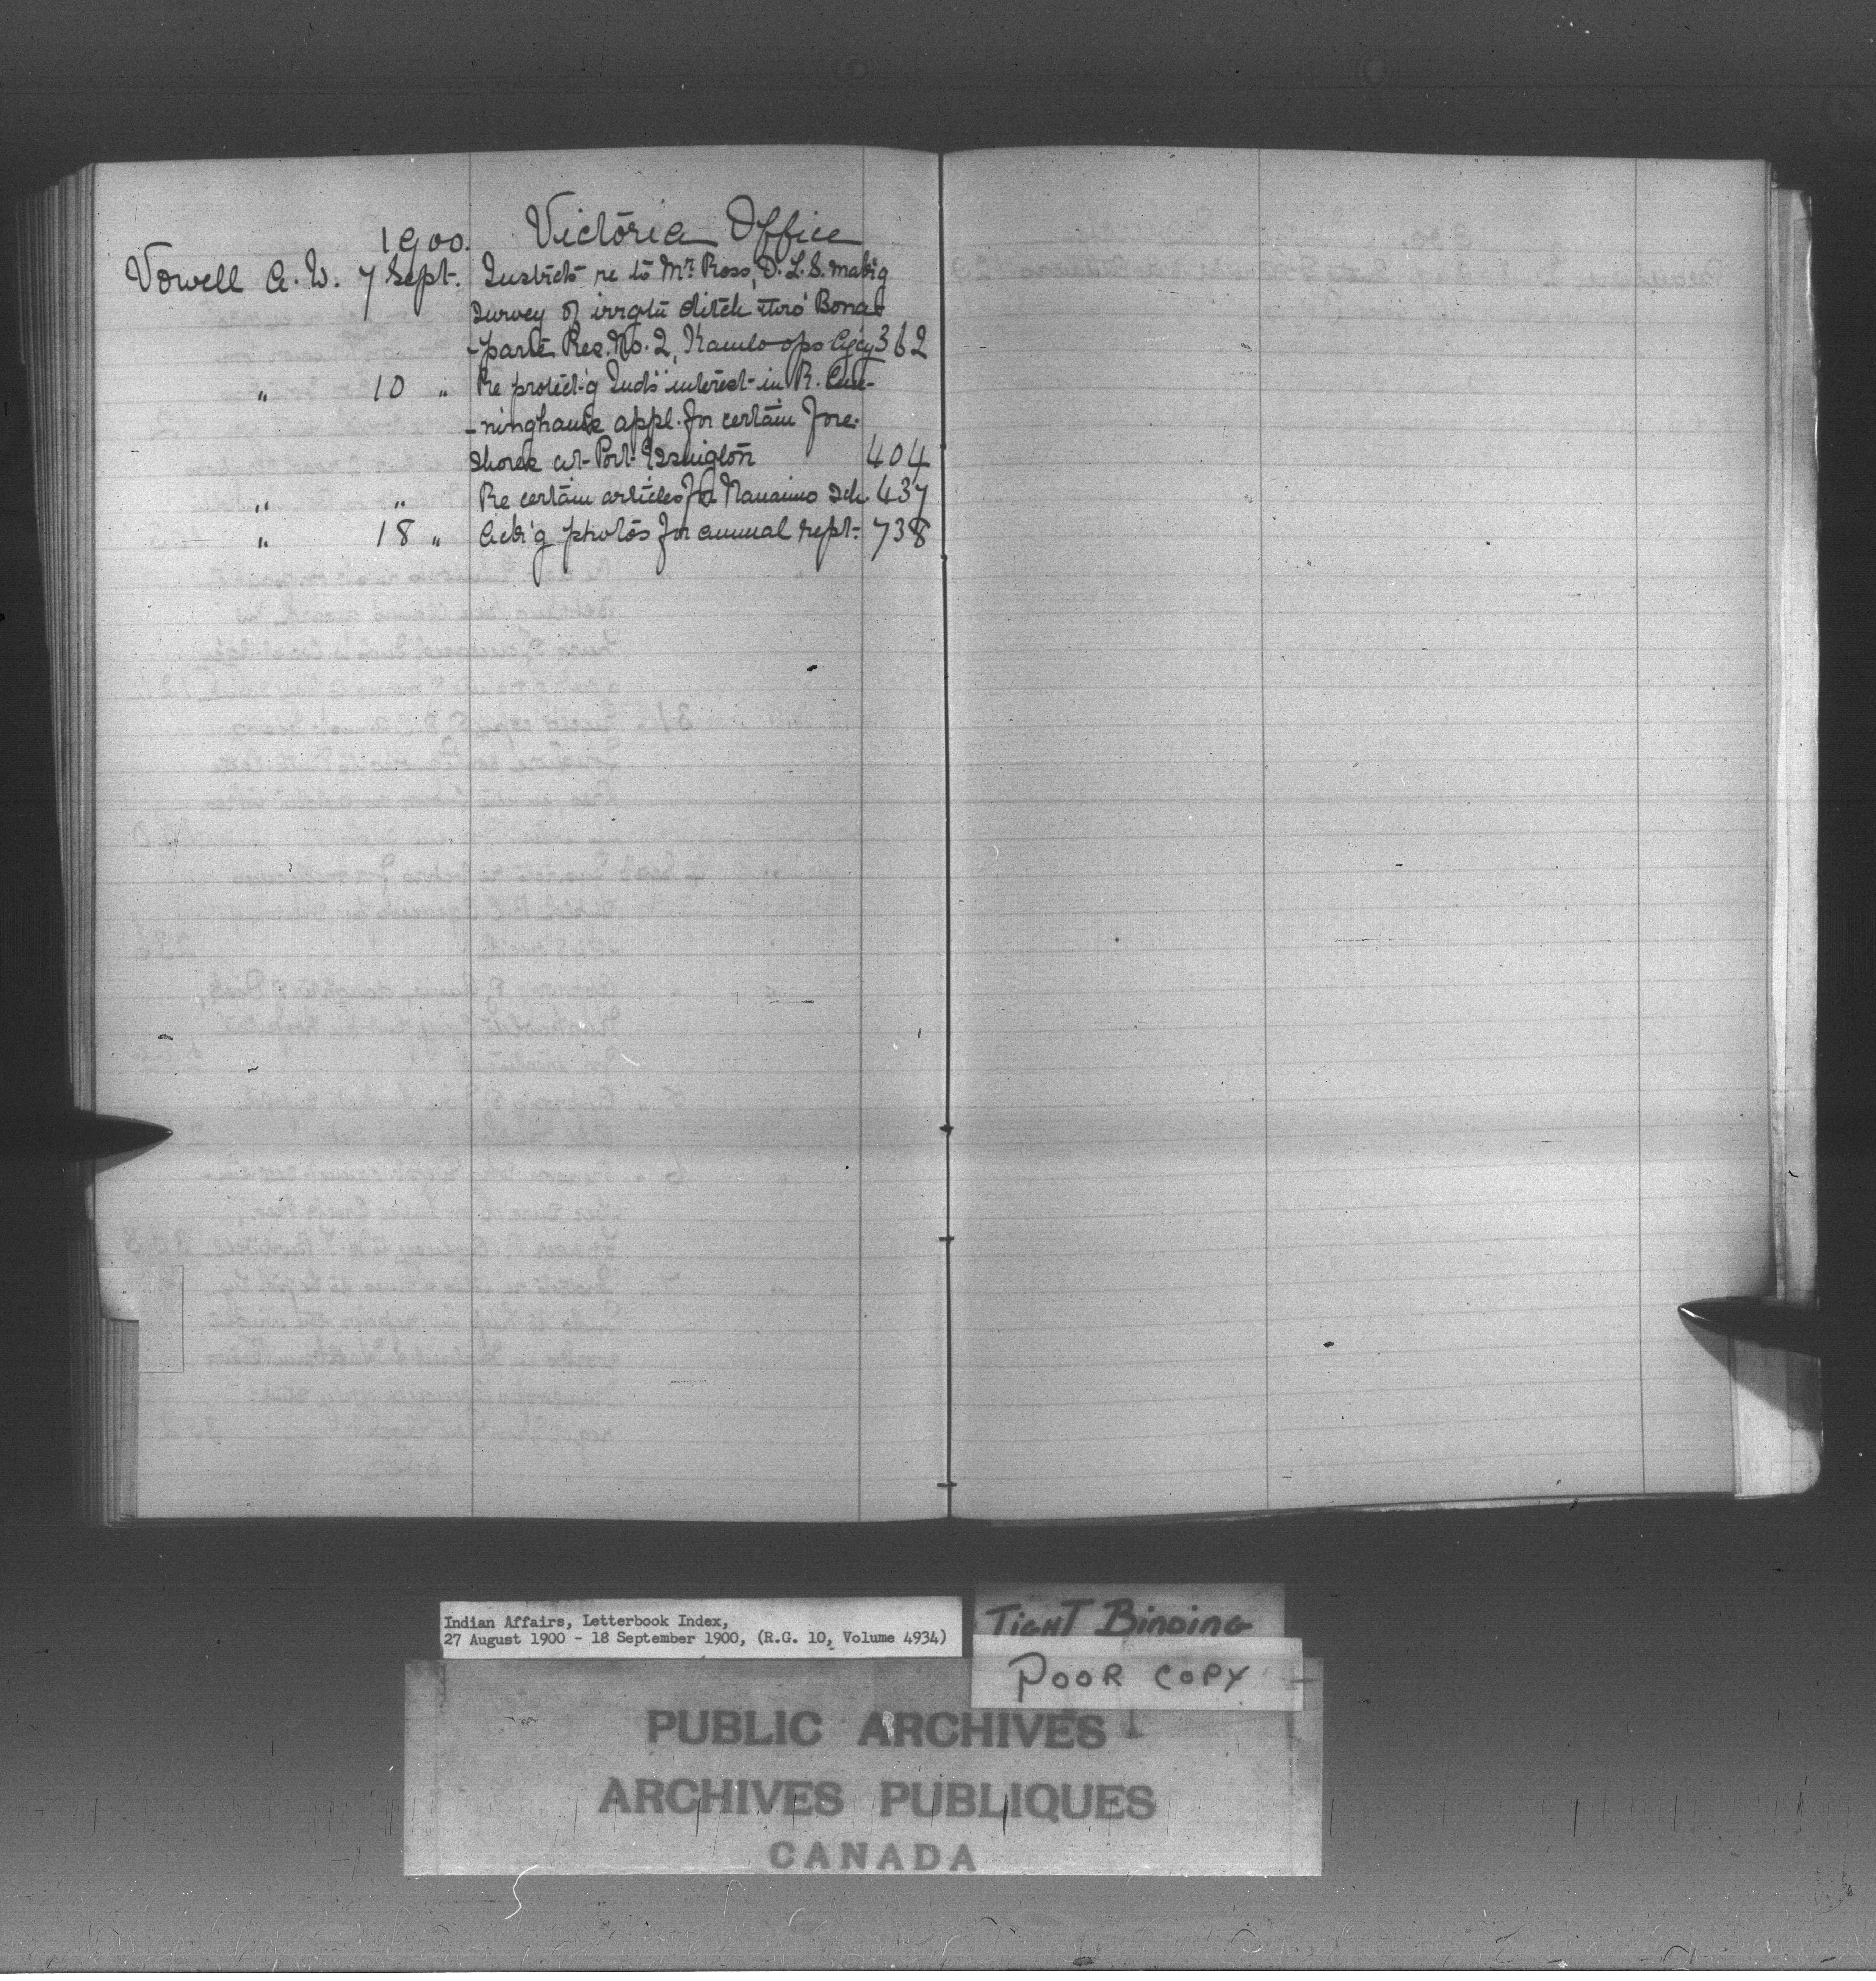 1900. Victoria Office
Vowell A. W. 7 Sept. Instricts re to Mr Ross, D. L. S. mak'g
survey of irrgtn ditch thro' Bona-
-parte Res. No. 2, Kamloops Agcy 362
" 10 " Re protect'g Inds' interest in R. Cun-
-ningham's appl. for certain fore-
shores at Port Essington 404
" " Re certain articles for Nanaimo sch. 437
" 18 " Ack'g photos for annual rept. 738
Indian Affairs, Letterbook Index,
27 August 1900 - 18 September 1900, (R.G. 10, Volume 4934)
TIGHT BINDING
POOR COPY
PUBLIC ARCHIVES
ARCHIVES PUBLIQUES
CANADA